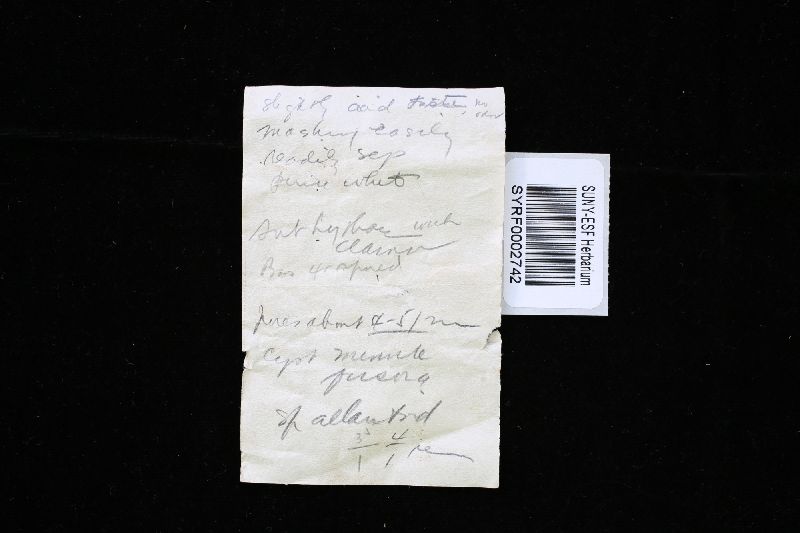 slightly acid taste, no
odor
mashing easily
readily sep
pure white
hyphae with
clamps
Bas 4 spored
pores about 4-5/mm
Cyst minute
fusoid
sp allantoid
3 4
1 1
SUNY-ESF Herbarium
SYRF0002742